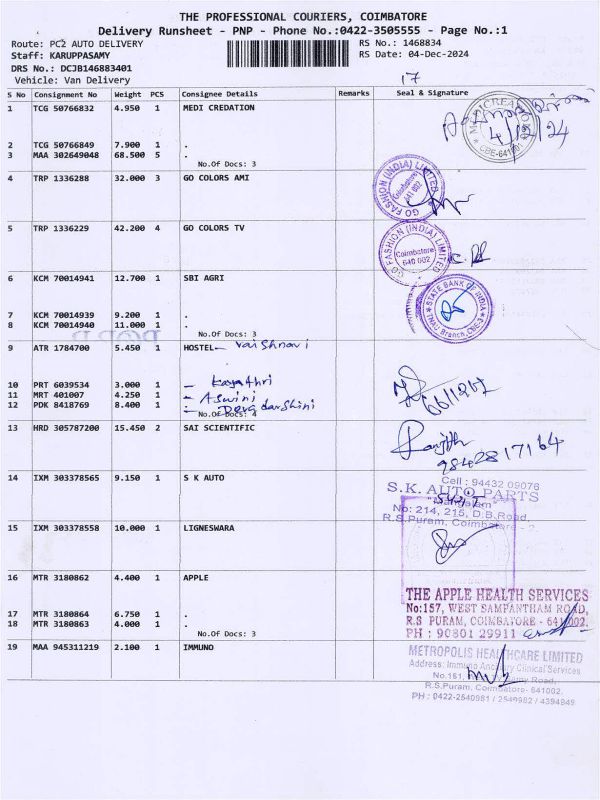 THE PROFESSIONAL COURIERS, COIMBATORE
Delivery Runsheet - PNP - Phone No.:0422-3505555 - Page No.:1
Route: PC2 AUTO DELIVERY
RS No.: 1468834
Staff: KARUPPASAMY
RS Date: 04-Dec-2024
DRS No.: DCJB146883401
Vehicle: Van Delivery
17
S No Consignment No Weight PCS Consignee Details Remarks Seal & Signature
1 TCG 50766832 4.950 1 MEDI CREDATION
2 TCG 50766849 7.900 1 .
3 MAA 302649048 68.500 5 .
No.Of Docs: 3
CBE-641
4/12/24
4 TRP 1336288 32.000 3 GO COLORS AMI
GO FASHION (INDIA) LIMITED
Coimbatore
641 002
5 TRP 1336229 42.200 4 GO COLORS TV
GO FASHION (INDIA) LIMITED
Coimbatore
640 002
6 KCM 70014941 12.700 1 SBI AGRI
STATE BANK OF INDIA
TNAU Branch, CBE-3
7 KCM 70014939 9.200 1 .
8 KCM 70014940 11.000 1 .
No.Of Docs: 3
9 ATR 1784700 5.450 1 HOSTEL - Vaishnavi
10 PRT 6039534 3.000 1 - Gayathri
11 MRT 401007 4.250 1 - Aswini
12 PDK 8418769 8.400 1 - Devadarshini
No.Of Docs: 4
13 HRD 305787200 15.450 2 SAI SCIENTIFIC
Ranjith
9842817164
14 IXM 303378565 9.150 1 S K AUTO
Cell : 94432 09076
S.K. AUTO PARTS
No: 214, 215, D.B.Road,
R.S.Puram, Coimbatore - 2
15 IXM 303378558 10.000 1 LIGNESWARA
16 MTR 3180862 4.400 1 APPLE
17 MTR 3180864 6.750 1 .
18 MTR 3180863 4.000 1 .
No.Of Docs: 3
THE APPLE HEALTH SERVICES
No:157, WEST SAMPANTHAM ROAD,
R.S PURAM, COIMBATORE - 641 002.
PH : 90801 29911
19 MAA 945311219 2.100 1 IMMUNO
METROPOLIS HEALTHCARE LIMITED
Address: Immuno Ancillary Clinical Services
Road,
R.S.Puram, Coimbatore- 641002.
PH : 0422-2540981 / 2549982 / 4394949